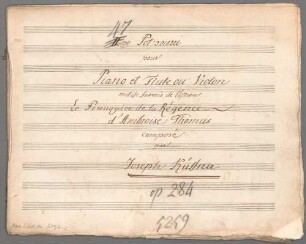 47
Pot pourri
pour
Piano et Flute ou Violon
de l'Opera
Le Perruquier de la Régence
d'Ambroise Thomas
composé
par
Joseph Küffner
op 284
5259